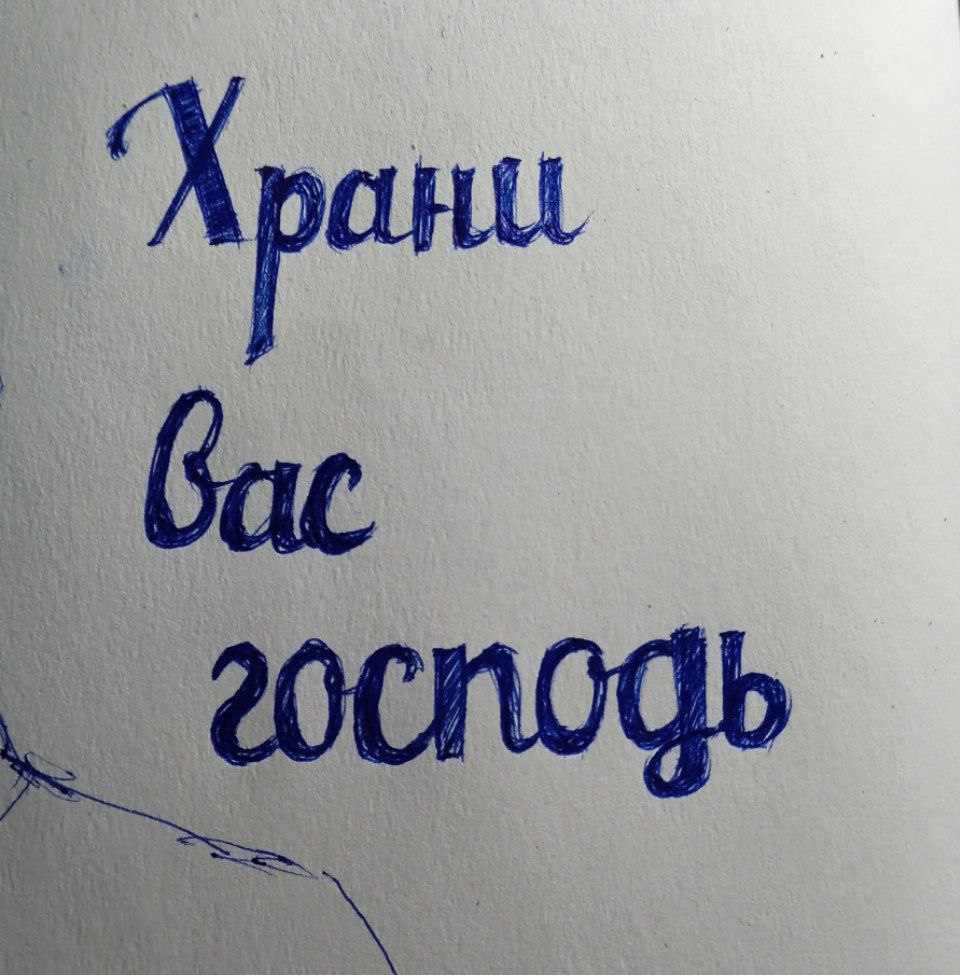 Храни
вас
господь